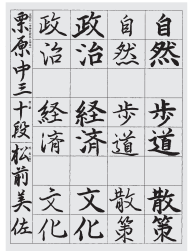 自然
歩道
散策
自然
歩道
散策
政治
経済
文化
政治
経済
文化
栗原中三 十段 松前美佐